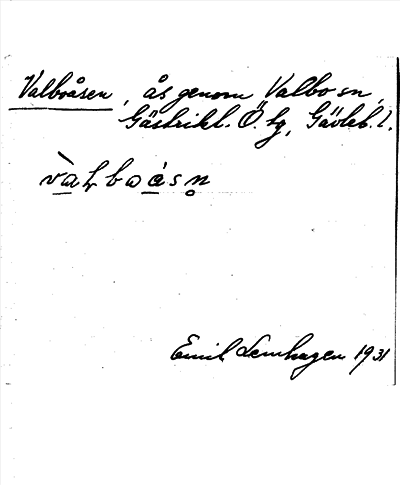 Valboåsen, ås genom Valbo sn,
Gästrikl. Ö. hg, Gävleb. l.
vàꞎboa̲sn̥
Emil Lenhagen 1931